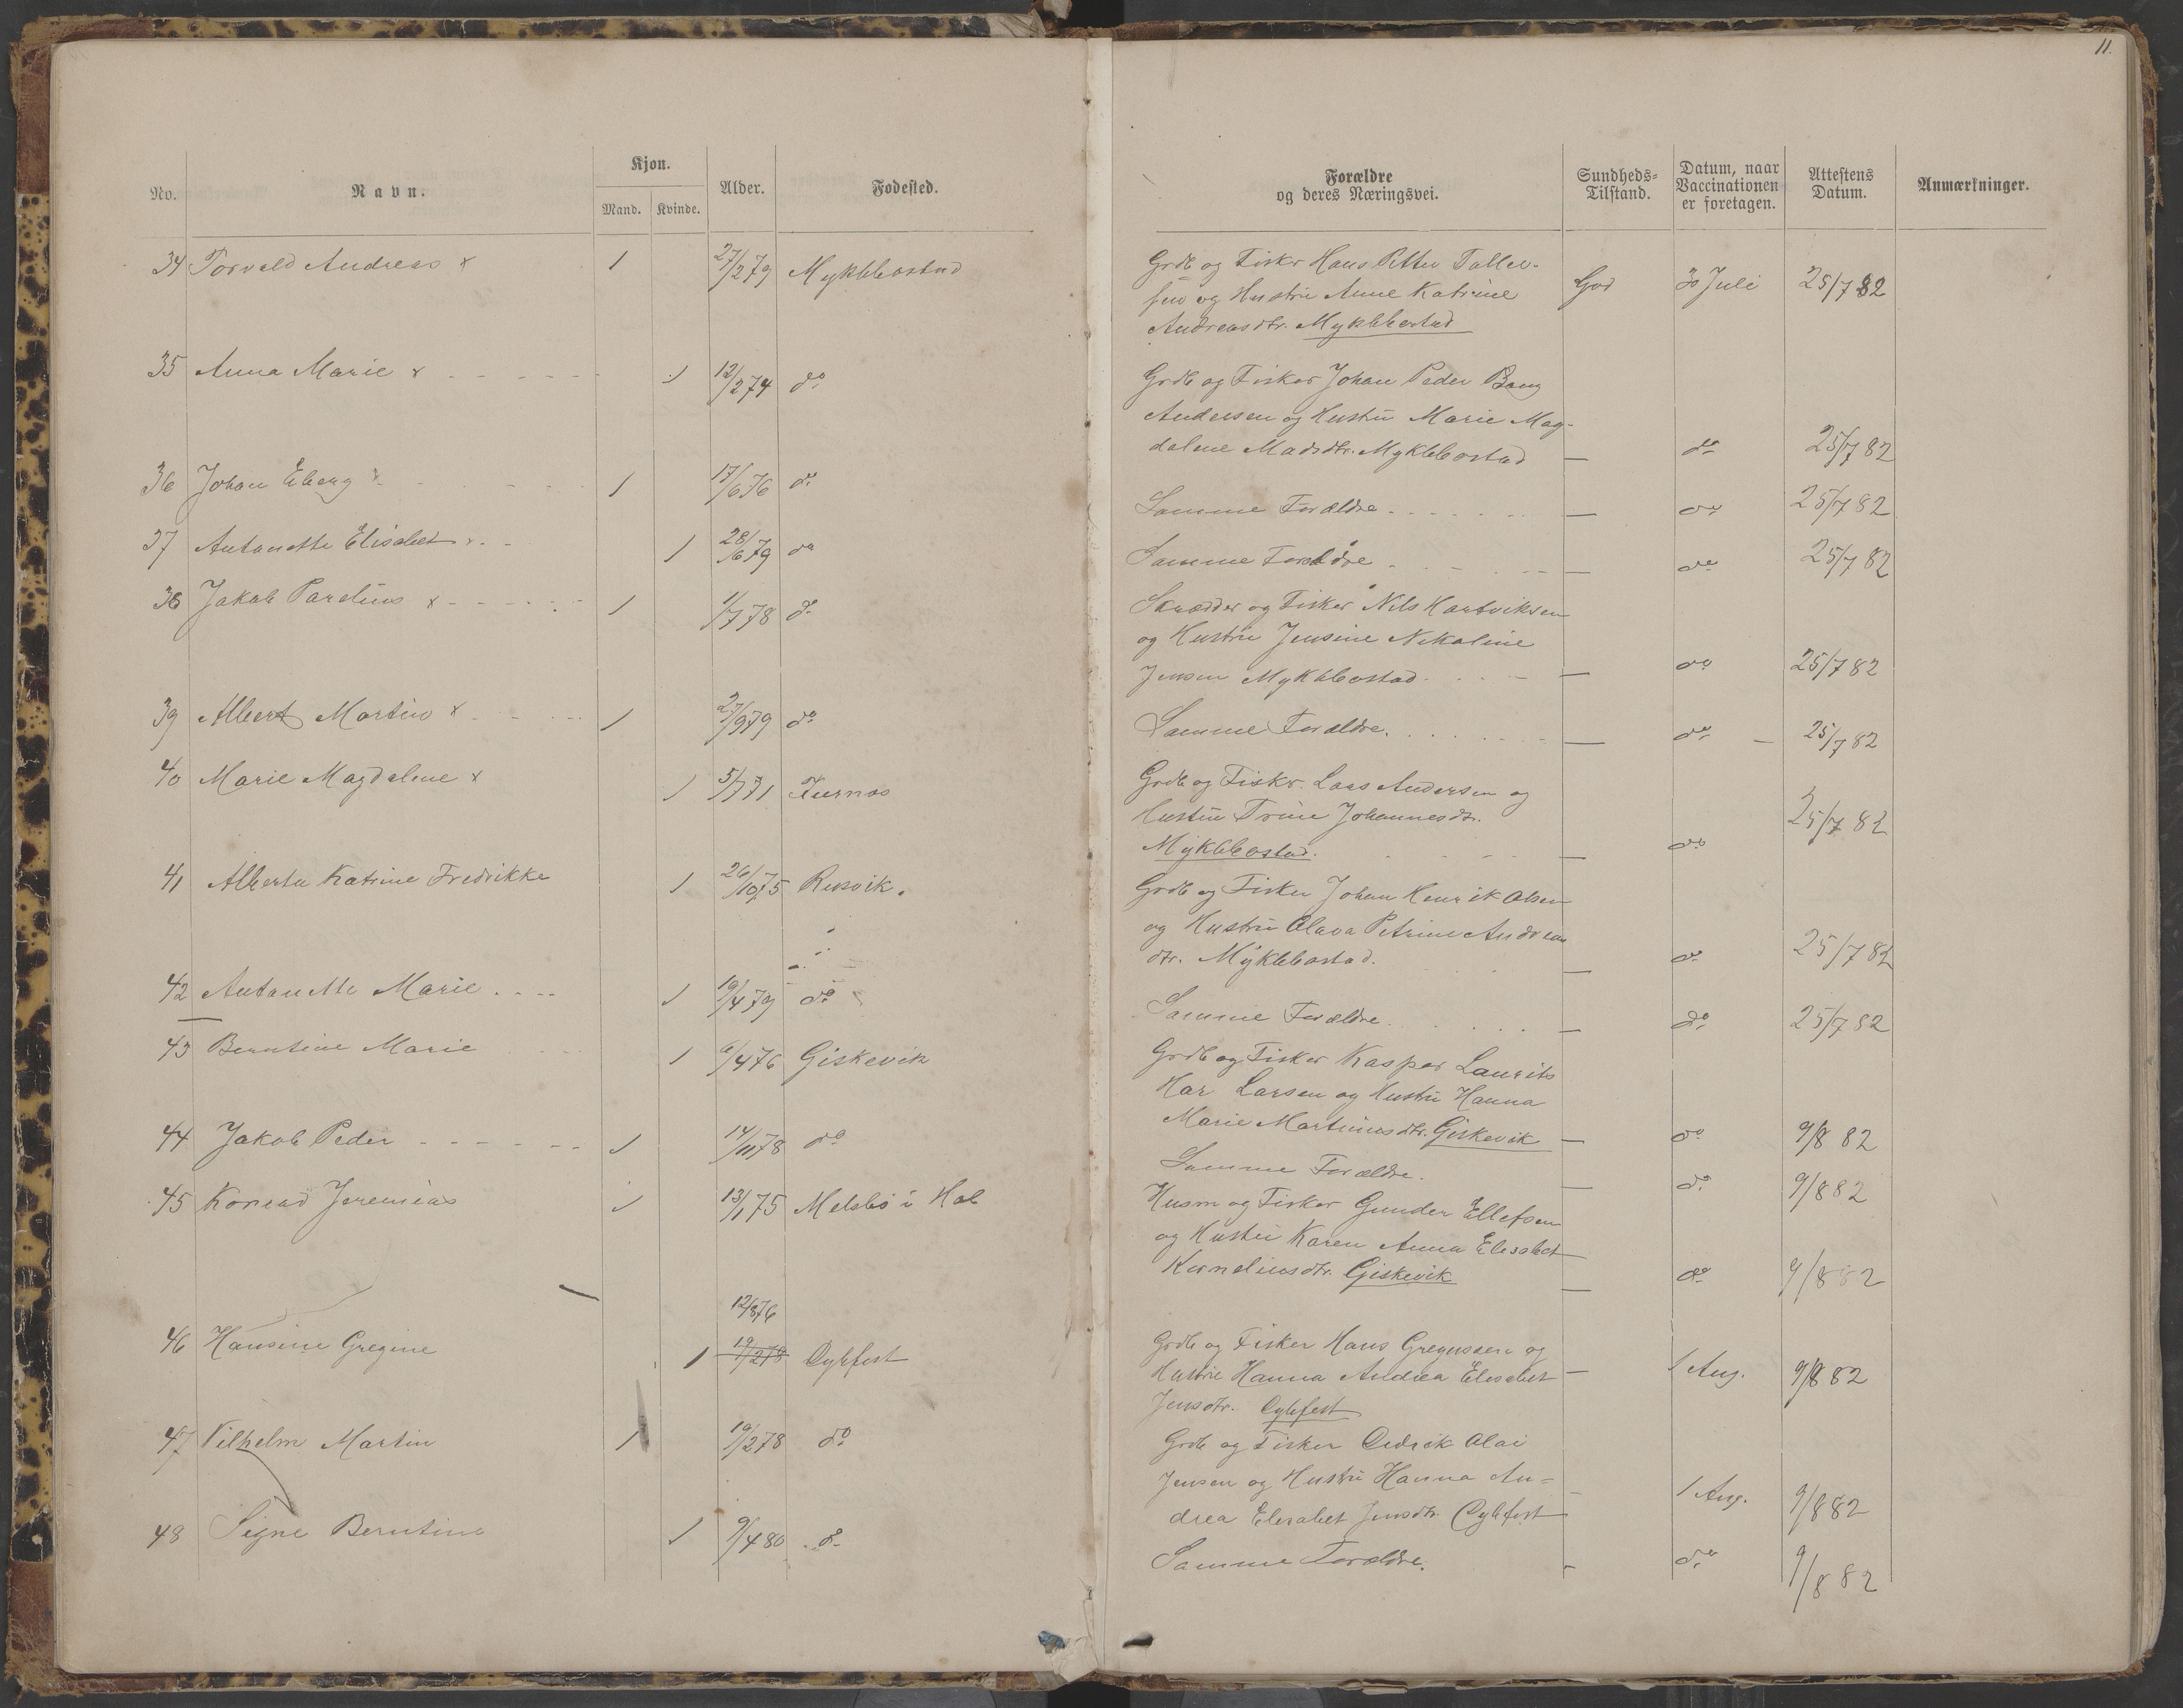 11.
No. Navn. Kjøn. Mand. Kvinde. Alder. Fødested.
Forældre og deres Næringsvei. Sundheds-Tilstand. Datum, naar Vaccinationen er foretagen. Attestens Datum. Anmærkninger.
34 Torvald Andreas x 1 27/2 79 Myklebostad
Grdb og Fisker Hans Petter Tollef-
sen og Hustru Anne Katrine God 30 Juli 25/7 82
Andreasdtr. Myklebostad
35 Anna Marie x 1 12/2 74 do
Grdb og Fisker Johan Peder Bang
Andersen og Hustru Marie Mag-
dalene Madsdtr. Myklebostad — do 25/7 82
36 Johan Eberg x 1 17/6 76 do
Samme Forældre — do 25/7 82
37 Antonette Elisabet x 1 28/6 79 do
Samme Forældre — do 25/7 82
38 Jakob Parelius x 1 1/7 78 do
Skrædder og Fisker Nils Hartviksen
og Hustru Jensine Nikoline
Jensen Myklebostad — do 25/7 82
39 Albert Martin x 1 27/9 79 do
Samme Forældre. — do — 25/7 82
40 Marie Magdalene x 1 5/7 71 Furnes
Grdb og Fisker Lars Andersen og
Hustru Trine Johannesdtr.
Myklebostad. — do 25/7 82
41 Alberta Katrine Fredrikke 1 26/10 75 Resvik.
Grdb og Fisker Johan Henrik Olsen
og Hustru Olava Petrine Andreas
dtr. Myklebostad. — do 25/7 82
42 Antonette Marie 1 19/4 79 do
Samme Forældre — do 25/7 82
43 Berntine Marie 1 6/4 76 Giskevik
Grdb og Fisker Kasper Laurits
Har Larsen og Hustru Hanna
Marie Martinusdtr. Giskevik — do 9/8 82
44 Jakob Peder 1 14/11 78 do
Samme Forældre. — do 9/8 82
45 Konrad Jeremias 1 13/1 75 Melsbø i Hol
Husm og Fisker Gunder Ellefsen
og Hustru Karen Anna Elesabet
Korneliusdtr. Giskevik — do 9/8 82
12/8 76
46 Hansine Gregine 1 19/2 78 Dybfest
Grdb og Fisker Hans Gregussen og
Hustru Hanna Andrea Elesabet — 1 Aug. 9/8 82
Jensdtr. Dybfest
47 Vilhelm Martin 1 19/2 78 do
Grdb og Fisker Dedrik Olai
Jensen og Hustru Hanna An-
drea Elesabet Jensdtr. Dybfest — 1 Aug. 9/8 82
48 Signe Berntine 1 9/4 80 do
Samme Forældre. — do 9/8 82